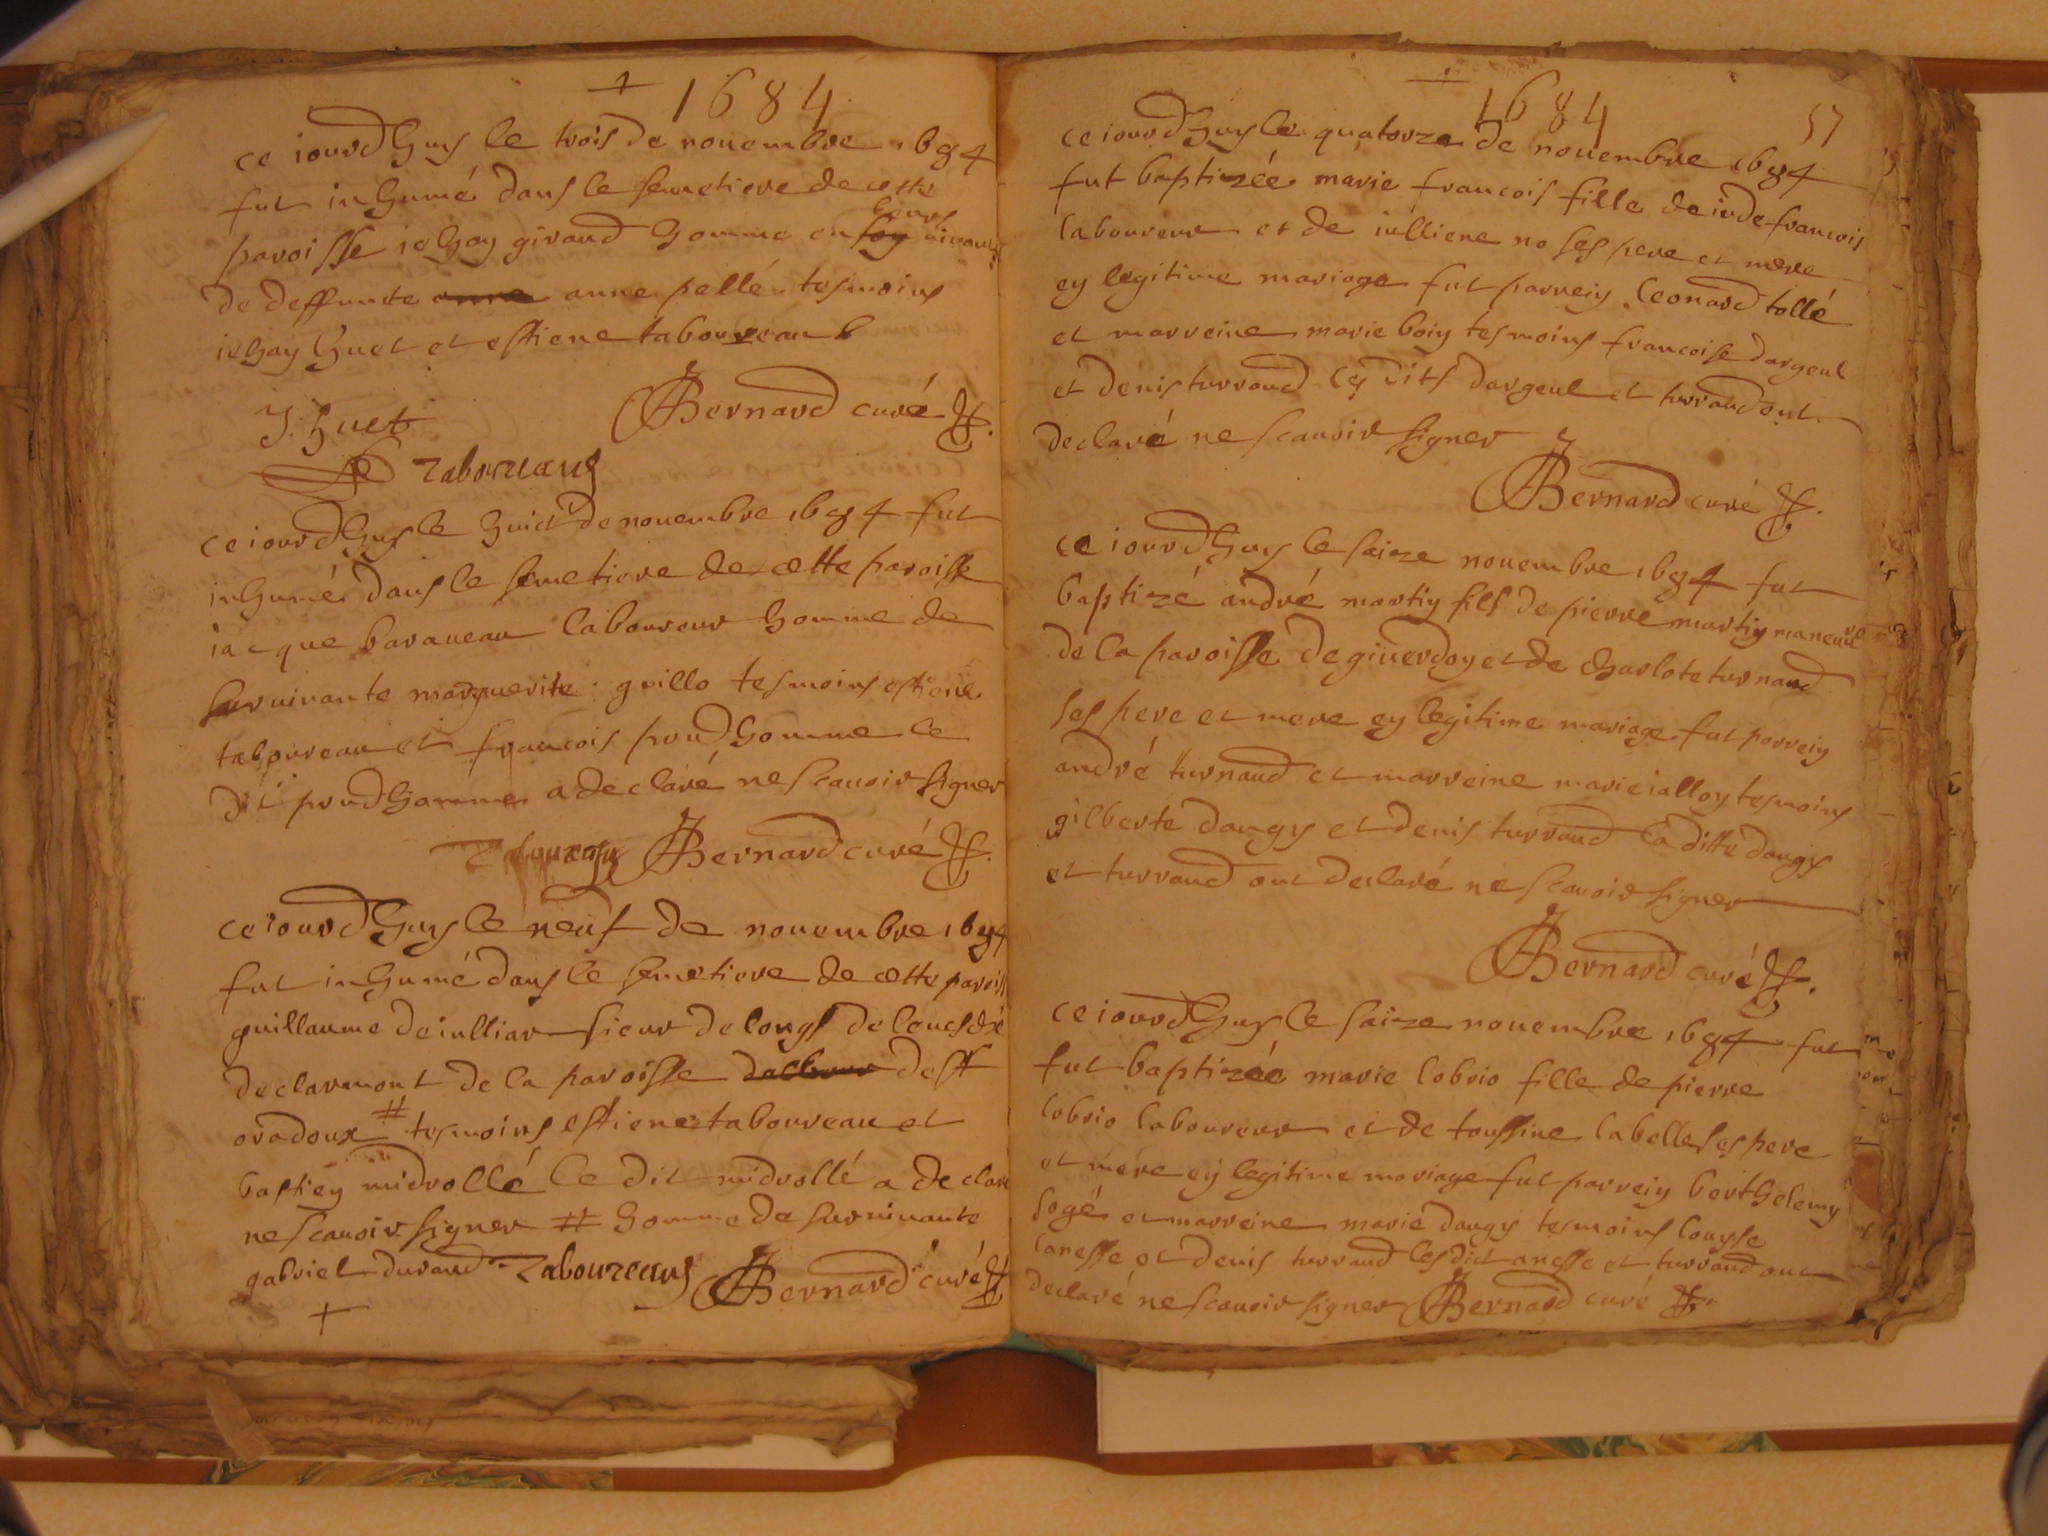 + 1684
ce iourdhuy le trois de nouembre 1684
fut inhumé dans le semetiere de ceste
paroisse iehan giraud homme en leurs viuant
de deffunte anne pellé tesmoins
iehan huet et estiene taboureau
J. huet Bernard curé
Taboureau
ce iourdhuy le huict de nouembre 1684 fut
inhumé dans le semetiere de cette paroisse
iacque baraueau laboureur homme de
suruiuante marguerite guillo tesmoins estiene
taboureau et francois proudhomme le
dit proudhomme a declaré ne scauoir signer
Taboureau Bernard curé
ce iourdhuy le neuf de nouembre 1684
fut inhumé dans le semetiere de cette paroiss
guillaume de iulliar sieur de longs de leuesché
de clarmont de la paroisse dest
oradoux # tesmoins estiene taboureau et
bastien midrollé le dit midrollé a declaré
ne scauoir signer # homme de suruiuante
gabriel durand Taboureau Bernard curé
+
+ 1684 57
ce iourdhuy le quatorze de nouembre 1684
fut baptizéé marie francois fille de iude francois
laboureur et de iulliene no ses pere et mere
en legitime mariage fut parrein leonard tollé
et marreine marie boin tesmoins francoise dargeul
et denis turraud les dits dargeul et turraud ont
declaré ne scauoir signer
Bernard curé
ce iourdhuy le saize nouembre 1684 fut
baptizé andré martin fils de pierre martin maneuure
de la paroisse de giuerdon et de charlote turnaud
ses pere et mere en legitime mariage fut parrein
andré turnaud et marreine marie iallon tesmoins
gilberte dangy et denis turraud la ditte dangy
et turraud ont declaré ne scauoir signer
Bernard curé
ce iourdhuy le saize nouembre 1684 fut
fut baptizéé marie lobrio fille de pierre
lobrio laboureur et de toussine labelle ses pere
et mere en legitime mariage fut parrein berthelemy
logé et marreine marie dangy tesmoins louyse
lanesse et denis turraud lesdict anesse et turraud ont
declaré ne scauoir signer Bernard curé